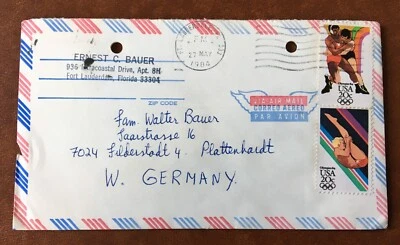 ERNEST C. BAUER
936 Intracoastal Drive, Apt. 8H
Fort Lauderdale, Florida 33304
PM
22 MAY
1984
USA
20c
ZIP CODE
VIA AIR MAIL
CORREO AEREO
PAR AVION
USA
20c
Fam Walter Bauer
Saarstrasse 16
7024 Filderstadt 4. Plattenhardt
W. GERMANY.